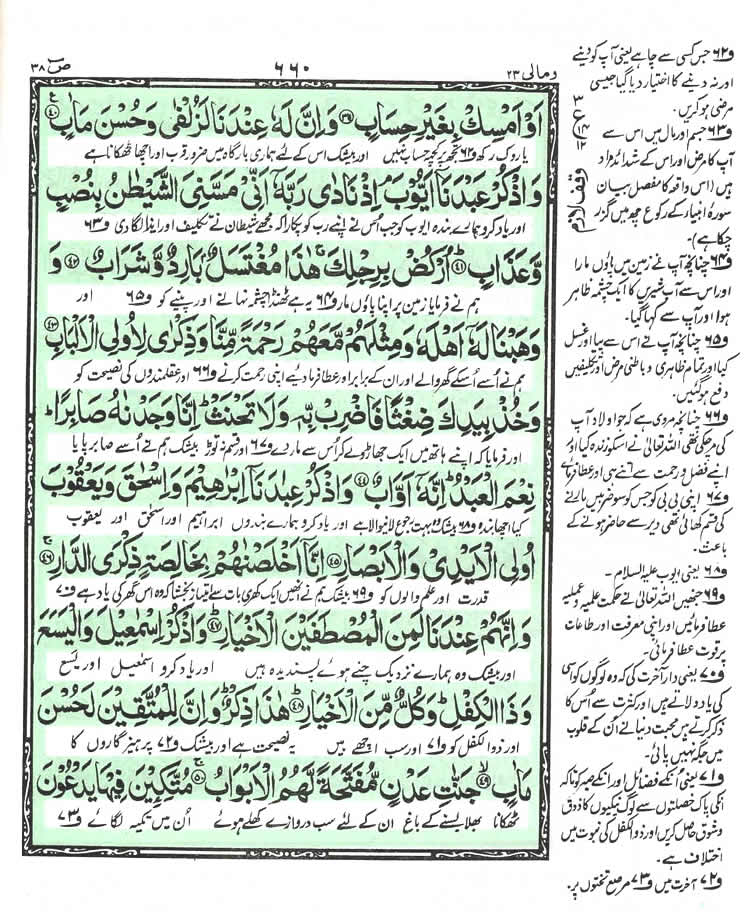 ومالی ۲۳
۶۶۰
ص ۳۸
اَوْ اَمْسِكْ بِغَیْرِ حِسَابٍ ۝۳۹ وَ اِنَّ لَهٗ عِنْدَنَا لَزُلْفٰى وَ حُسْنَ مَاٰبٍ ۝۴۰
یا روک رکھ و۶۲ تجھ پر کچھ حساب نہیں اور بیشک اس کے لئے ہماری بارگاہ میں ضرور قرب اور اچھا ٹھکانا ہے
وَ اذْكُرْ عَبْدَنَاۤ اَیُّوْبَ ۘ اِذْ نَادٰى رَبَّهٗۤ اَنِّیْ مَسَّنِیَ الشَّیْطٰنُ بِنُصْبٍ
اور یاد کرو ہمارے بندہ ایوب کو جب اُس نے اپنے رب کو پکارا کہ مجھے شیطان نے تکلیف اور ایذا لگا دی و۶۳
وَّ عَذَابٍ ۝۴۱ اُرْكُضْ بِرِجْلِكَ ۚ هٰذَا مُغْتَسَلٌۢ بَارِدٌ وَّ شَرَابٌ ۝۴۲ وَ
ہم نے فرمایا زمین پر اپنا پاؤں مار و۶۴ یہ ہے ٹھنڈا چشمہ نہانے اور پینے کو و۶۵ اور
وَهَبْنَا لَهٗۤ اَهْلَهٗ وَ مِثْلَهُمْ مَّعَهُمْ رَحْمَةً مِّنَّا وَ ذِكْرٰى لِاُولِی الْاَلْبَابِ ۝۴۳
ہم نے اُسے اُسکے گھر والے اور ان کے برابر اور عطا فرما دیے اپنی رحمت کرنے و۶۶ اور عقلمندوں کی نصیحت کو
وَ خُذْ بِیَدِكَ ضِغْثًا فَاضْرِبْ بِّهٖ وَ لَا تَحْنَثْ ؕ اِنَّا وَجَدْنٰهُ صَابِرًا ؕ
اور فرمایا کہ اپنے ہاتھ میں ایک جھاڑو لے کر اُس سے مار دے و۶۷ اور قسم نہ توڑ بیشک ہم نے اُسے صابر پایا
نِعْمَ الْعَبْدُ ؕ اِنَّهٗۤ اَوَّابٌ ۝۴۴ وَ اذْكُرْ عِبٰدَنَاۤ اِبْرٰهِیْمَ وَ اِسْحٰقَ وَ یَعْقُوْبَ
کیا اچھا بندہ و۶۸ بیشک وہ بہت رجوع لانیوالا ہے اور یاد کرو ہمارے بندوں ابراہیم اور اسحٰق اور یعقوب
اُولِی الْاَیْدِیْ وَ الْاَبْصَارِ ۝۴۵ اِنَّاۤ اَخْلَصْنٰهُمْ بِخَالِصَةٍ ذِكْرَى الدَّارِ ۝۴۶
قدرت اور علم والوں کو و۶۹ بیشک ہم نے اُنھیں ایک کھری بات سے امتیاز بخشا کہ وہ اس گھر کی یاد ہے و۷۰
وَ اِنَّهُمْ عِنْدَنَا لَمِنَ الْمُصْطَفَیْنَ الْاَخْیَارِ ۝۴۷ وَ اذْكُرْ اِسْمٰعِیْلَ وَ الْیَسَعَ
اور بیشک وہ ہمارے نزدیک چنے ہوئے پسندیدہ ہیں اور یاد کرو اسمٰعیل اور یسع
وَ ذَا الْكِفْلِ ؕ وَ كُلٌّ مِّنَ الْاَخْیَارِ ۝۴۸ هٰذَا ذِكْرٌ ؕ وَ اِنَّ لِلْمُتَّقِیْنَ لَحُسْنَ
اور ذوالکفل کو و۷۱ اور سب اچھے ہیں یہ نصیحت ہے اور بیشک و۷۲ پرہیزگاروں کا
مَاٰبٍ ۝۴۹ جَنّٰتِ عَدْنٍ مُّفَتَّحَةً لَّهُمُ الْاَبْوَابُ ۝۵۰ مُتَّكِـٕیْنَ فِیْهَا یَدْعُوْنَ
ٹھکانا بھلا بسنے کے باغ ان کے لئے سب دروازے کھلے ہوئے اُن میں تکیہ لگائے و۷۳
و۶۲ جس کسی سے چاہے یعنی آپ کو دینے
اور نہ دینے کا اختیار دیا گیا جیسی
مرضی ہو کریں۔
و۶۳ جسم اور مال میں اس سے
آپ کا مرض اور اس کے شدائد مراد
ہیں (اس واقعہ کا مفصل بیان
سورۂ انبیاء کے رکوع چھ میں گزر
چکا ہے)۔
و۶۴ چنانچہ آپ نے زمین میں پاؤں مارا
اور اس سے آب شیریں کا ایک چشمہ ظاہر
ہوا اور آپ سے کہا گیا۔
و۶۵ چنانچہ آپ نے اس سے پیا اور غسل
کیا اور تمام ظاہری و باطنی مرض اور تکلیفیں
دفع ہو گئیں۔
و۶۶ چنانچہ مروی ہے کہ جو اولاد آپ
کی مر چکی تھی اللہ تعالیٰ نے اسکو زندہ کیا اور
اپنے فضل و رحمت سے اتنے ہی اور عطا فرمائے
و۶۷ اپنی بی بی کو جس کو سو ضربیں مارنے
کی قسم کھائی تھی دیر سے حاضر ہونے کے
باعث۔
و۶۸ یعنی ایوب علیہ السلام۔
و۶۹ جنھیں اللہ تعالیٰ نے حکمت علمیہ و عملیہ
عطا فرمائیں اور اپنی معرفت اور طاعات
پر قوت عطا فرمائی۔
و۷۰ یعنی دار آخرت کی کہ وہ لوگوں کو اسی
کی یاد دلاتے ہیں اور کثرت سے اُس کا
ذکر کرتے ہیں محبت دنیا نے اُن کے قلوب
میں جگہ نہیں پائی۔
و۷۱ یعنی اُنکے فضائل اور انکے صبر کو تاکہ
انکی پاک خصلتوں سے لوگ نیکیوں کا ذوق
و شوق حاصل کریں اور ذوالکفل کی نبوت میں
اختلاف ہے۔
و۷۲ آخرت میں و۷۳ مرصع تختوں پر۔
۳
ع
۱۴
۱۲
وقف لازم